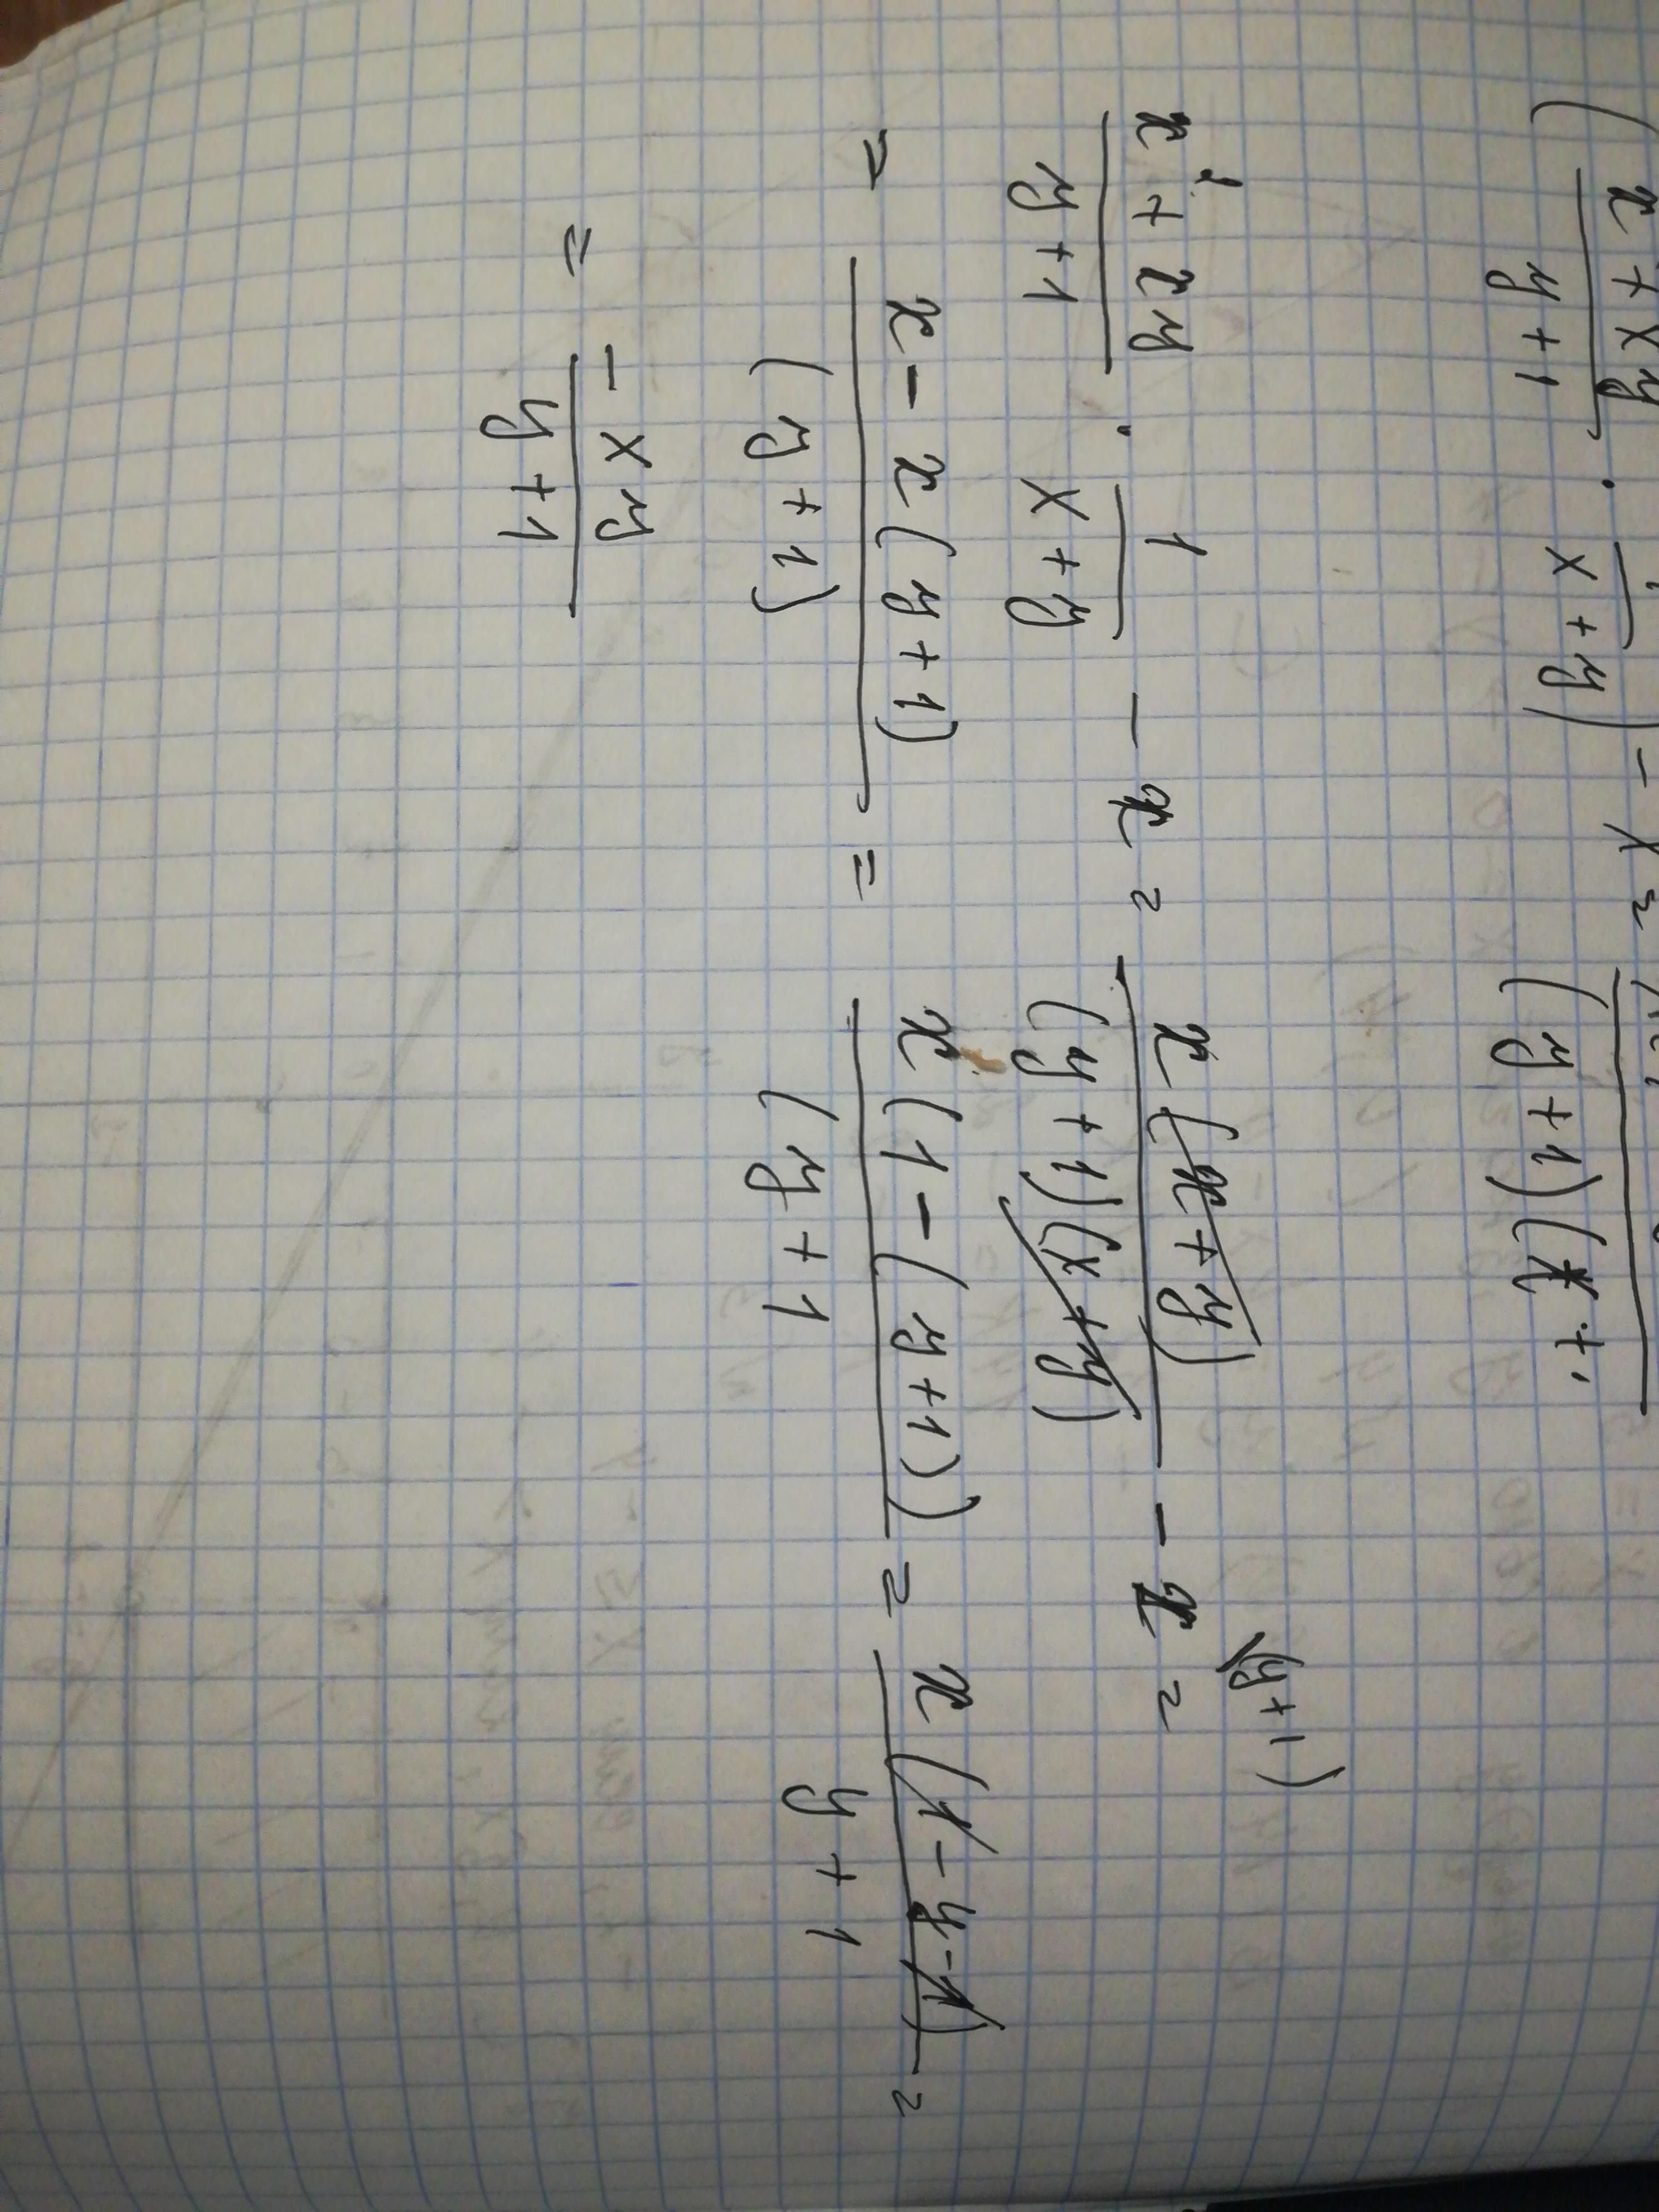 ( x² + xy / y + 1 · 1 / x + y ) - x = / (y + 1)(x +
x² + xy / y + 1 · 1 / x + y - x = x (x + y) / (y + 1)(x + y) - x (y + 1) =
= x - x (y + 1) / (y + 1) = x (1 - (y + 1)) / (y + 1 = x (1 - y - 1) / y + 1 =
= - xy / y + 1